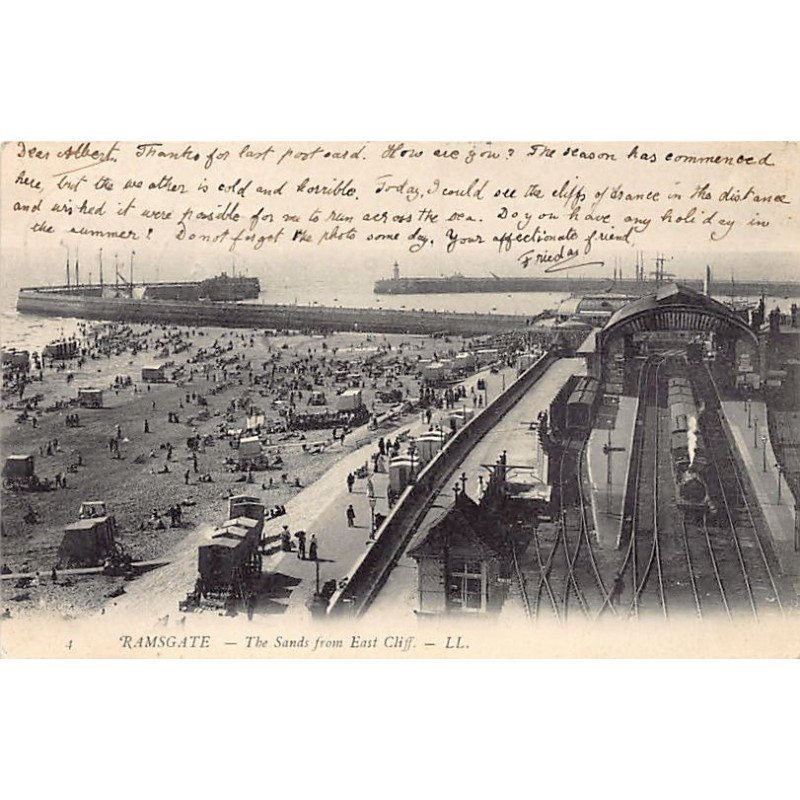 Dear Albert. Thanks for last post card. How are you? The season has commenced
here, but the weather is cold and horrible. Today, I could see the cliffs of France in the distance
and wished it were possible for me to run across the sea. Do you have any holiday in
the summer? Do not forget the photo some day. Your affectionate friend,
Frieda
4 RAMSGATE — The Sands from East Cliff. — LL.